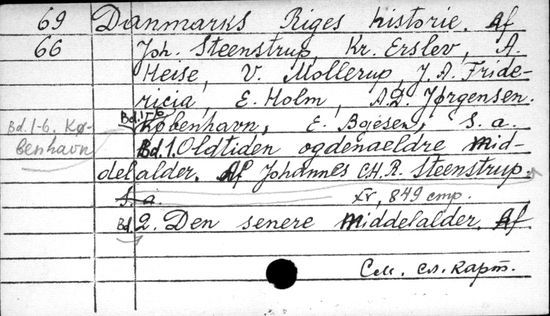 69 Danmarks Riges historie. Af
66 Joh. Steenstrup, Kr. Erslev, A.
Heise, V. Mollerup, J. A. Fride-
ricia, E. Holm, A. D. Jørgensen.
Bd. 1-6
Bd. 1-6. Kø-
benhavn
København, E. Bojesen, s. a.
Bd. 1. Oldtiden og den ældre Mid-
delalder. Af Johannes C.H.R. Steenstrup.
S. a. XV, 849 стр.
Bd. 2. Den senere Middelalder. Af
См. сл. карт.